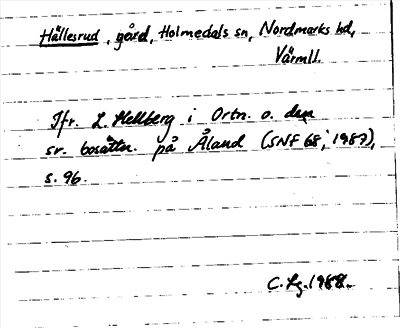 Hällesrud, gård, Holmedals sn, Nordmarks hd,
Värml.
Jfr. L. Hellberg i Ortn. o. den
sv. bosättn. på Åland (SNF 68, 1987),
s. 96.
C. Lg. 1988.